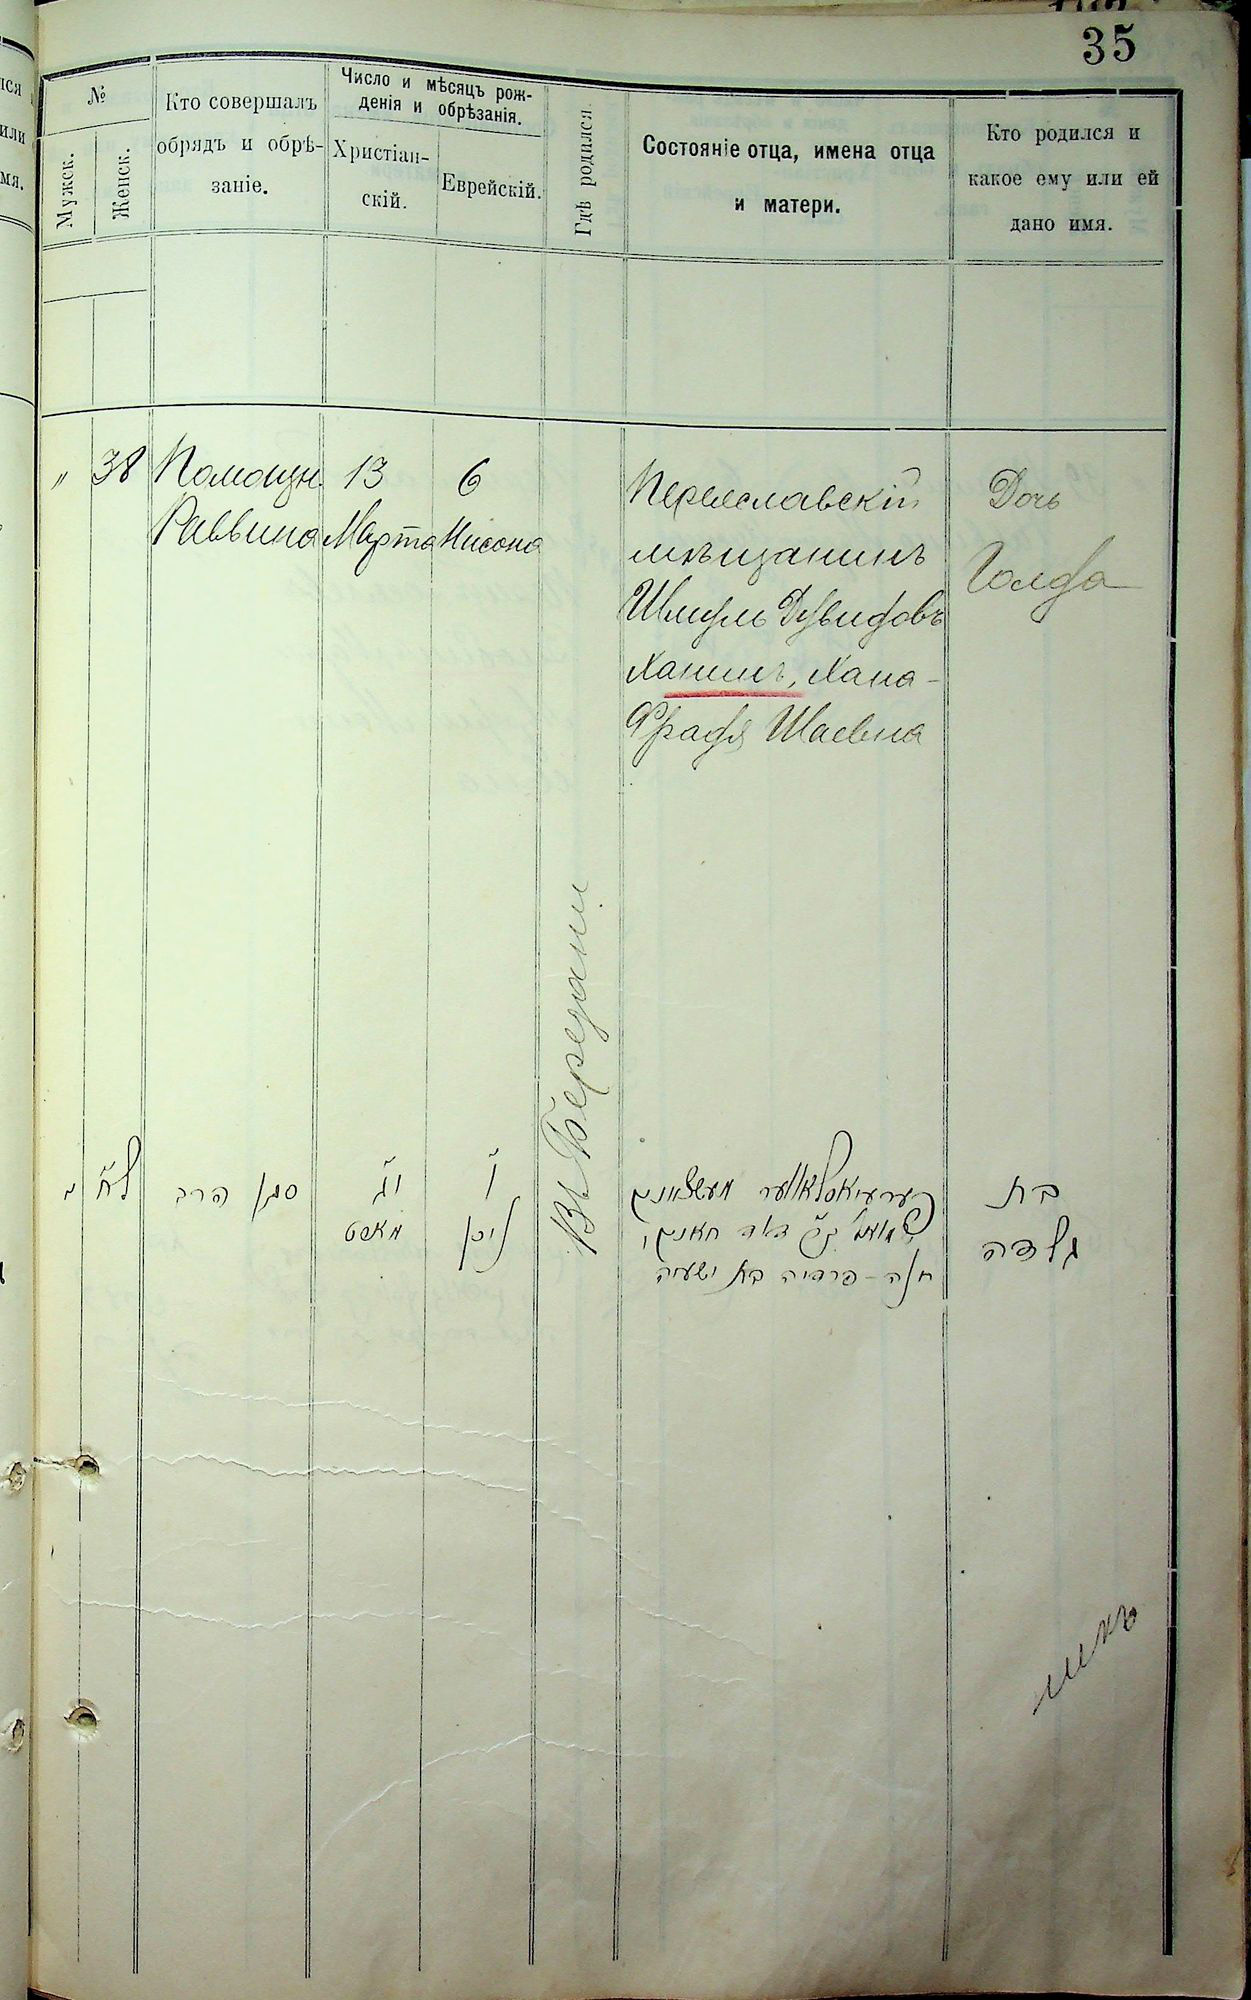 35
№
Мужск.
Женск.
Кто совершалъ
обрядъ и обрѣ-
заніе.
Число и мѣсяцъ рож-
денія и обрѣзанія.
Христіан-
скій.
Еврейскій.
Гдѣ родился.
Состояніе отца, имена отца
и матери.
Кто родился и
какое ему или ей
дано имя.
" 38
Помощн.
Раввина
13
Марта
6
Нисона
Въ Березани
Переяславскій
мѣщанинъ
Шмуль Дувидовъ
Ханинъ, Хана-
Фрадя Шаевна
Дочь
Голда
ל״ח
סגן הרב
י״ג
מארט
ו׳
ניסן
שמואל דוד חאנין,
חנה-פרדיה בת ישעיה
בת
גלדה